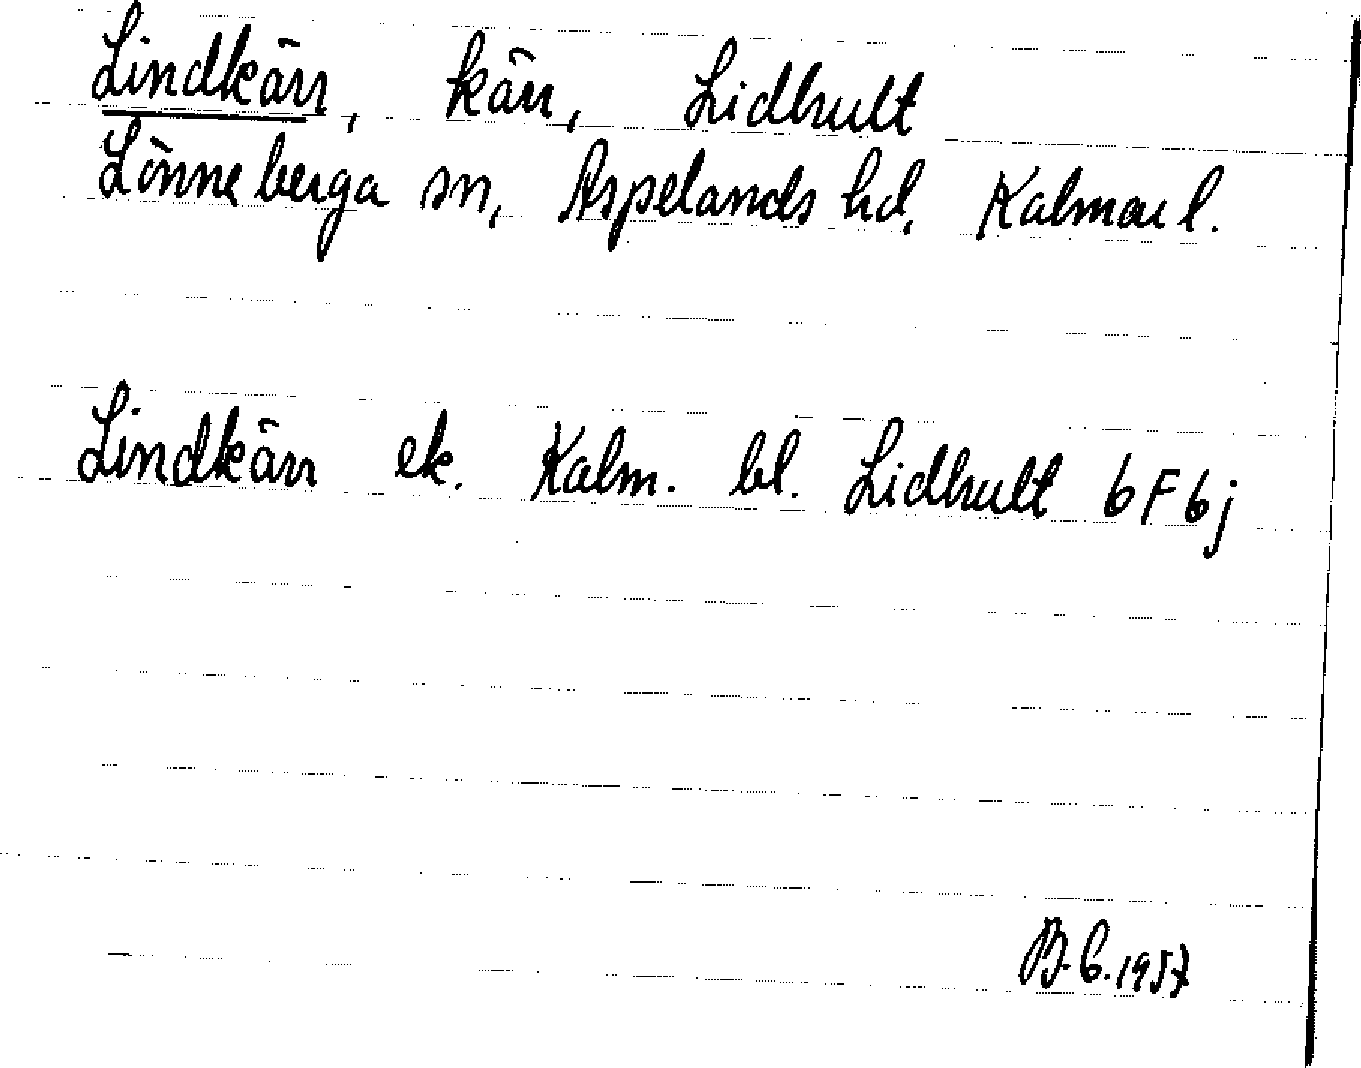 Lindkärr, kärr, Lidhult
Lönneberga sn, Aspelands hd, Kalmar l.
Lindkärr ek. Kalm. bl. Lidhult 6F6j
B.G. 1957